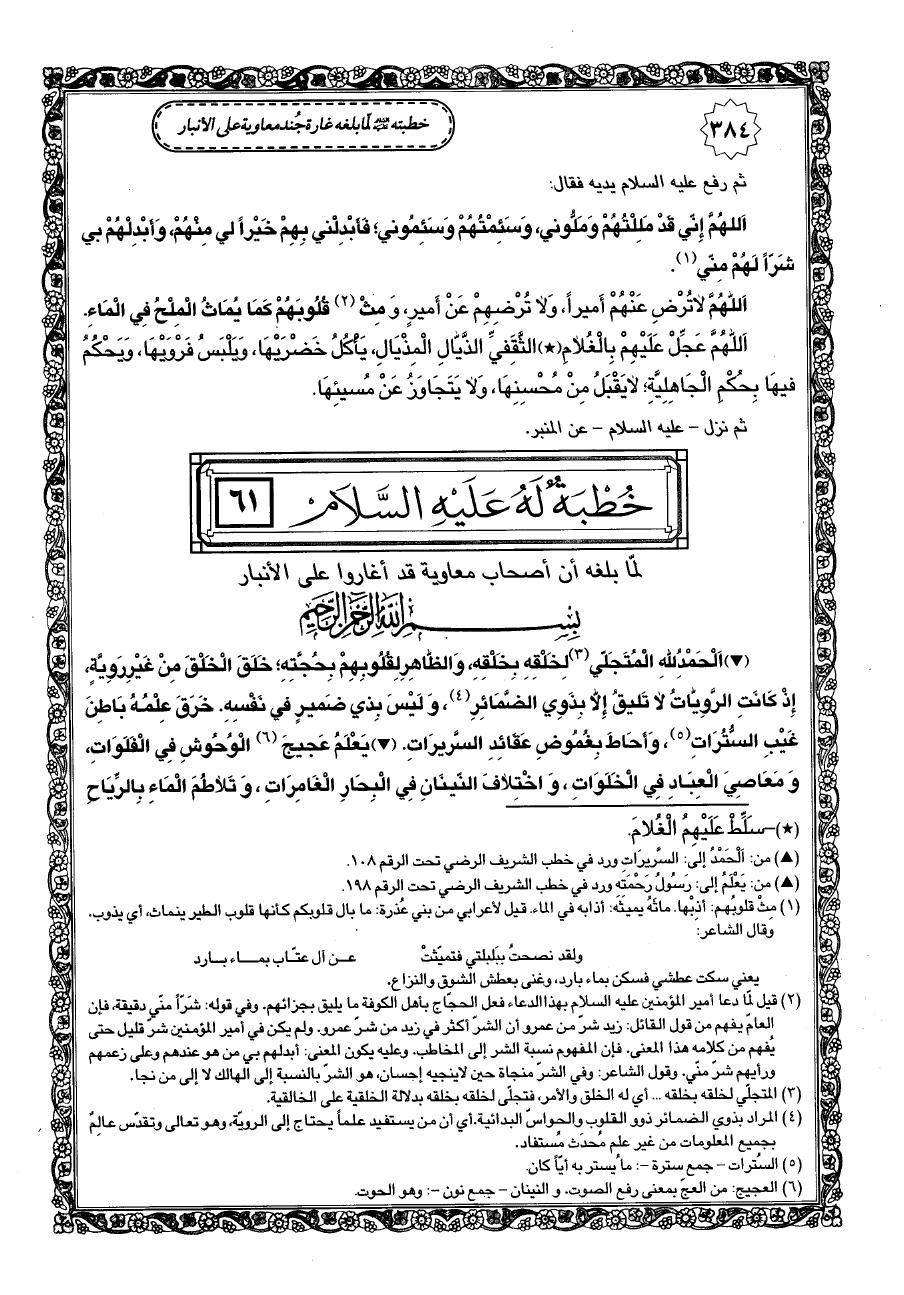 ٣٨٤
خطبته عليه السلام لما بلغه غارة جُند معاوية على الأنبار
ثم رفع عليه السلام يديه فقال:
اَللهُمَّ إِنّي قَدْ مَلِلْتُهُمْ وَمَلُّوني، وَسَئِمْتُهُمْ وَسَئِمُوني؛ فَأَبْدِلْني بِهِمْ خَيْراً لي مِنْهُمْ، وَأَبْدِلْهُمْ بي
شَرّاً لَهُمْ مِنّي(١).
اَللّهُمَّ لاتُرْضِ عَنْهُمْ أَميراً، وَلاَ تُرْضِهِمْ عَنْ أَميرٍ، وَ مِثْ(٢) قُلُوبَهُمْ كَمَا يُمَاثُ الْمِلْحُ فِي الْمَاءِ.
اَللّهُمَّ عَجِّلْ عَلَيْهِمْ بِالْغُلاَمِ(★)الثَّقَفيِّ الذَّيَّالِ الْمِذْيَالِ، يَأْكُلُ خَضْرَيْهَا، وَيَلْبَسُ فَرْوَيْهَا، وَيَحْكُمُ
فيهَا بِحُكْمِ الْجَاهِلِيَّةِ؛ لايَقْبَلُ مِنْ مُحْسِنِهَا، وَلاَ يَتَجَاوَزُ عَنْ مُسيئِهَا.
ثم نزل - عليه السلام - عن المنبر.
خُطْبَةٌ لَهُ عَلَيْهِ السَّلَامُ
٦١
لمّا بلغه أن أصحاب معاوية قد أغاروا على الأنبار
بِسْمِ اللهِ الرَّحْمنِ الرَّحيمِ
(▼)اَلْحَمْدُللهِ الْمُتَجَلّي(٣)لِخَلْقِهِ بِخَلْقِهِ، وَالظَّاهِرِلِقُلُوبِهِمْ بِحُجَّتِهِ؛ خَلَقَ الْخَلْقَ مِنْ غَيْرِرَوِيَّةٍ،
إِذْ كَانَتِ الرَّوِيَّاتُ لاَ تَليقُ إِلاَّ بِذَوِي الضَّمَائِرِ(٤)، وَ لَيْسَ بِذي ضَميرٍ في نَفْسِهِ. خَرَقَ عِلْمُهُ بَاطِنَ
غَيْبِ السُّتُرَاتِ(٥)، وَأَحَاطَ بِغُمُوضِ عَقَائِدِ السَّريرَاتِ. (▼)يَعْلَمُ عَجيجَ(٦) الْوُحُوشِ فِي الْفَلَوَاتِ،
وَ مَعَاصِيَ الْعِبَادِ فِي الْخَلَوَاتِ، وَ اخْتِلاَفَ النّينَانِ فِي الْبِحَارِ الْغَامِرَاتِ، وَ تَلاَطُمَ الْمَاءِ بِالرِّيَاحِ
(★)-سَلِّطْ عَلَيْهِمُ الْغُلاَمَ.
(▲) من: اَلْحَمْدُ إلى: السَّريرَاتِ ورد في خطب الشريف الرضي تحت الرقم ١٠٨.
(▲) من: يَعْلَمُ إلى: رَسُولُ رَحْمَتِهِ ورد في خطب الشريف الرضي تحت الرقم ١٩٨.
(١) مِثْ قلوبَهُم: أذِبْها. ماثَهُ يميثَه: أذابه في الماء. قيل لأعرابي من بني عُذرة: ما بال قلوبكم كأنها قلوب الطير ينماث، أي يذوب.
وقال الشاعر:
ولقد نصحتُ ببَلبلتي فتميّثتْ عن آل عتّاب بماء بارد
يعني سكت عطشي فسكن بماء بارد، وغنى بعطش الشوق والنزاع.
(٢) قيل لمّا دعا أمير المؤمنين عليه السلام بهذا الدعاء فعل الحجّاج بأهل الكوفة ما يليق بجزائهم. وفي قوله: شَرّاً منّي دقيقة، فإن
العامّ يفهم من قول القائل: زيد شرّ من عمرو أن الشرّ أكثر في زيد من شرّ عمرو. ولم يكن في أمير المؤمنين شرّ قليل حتى
يُفهم من كلامه هذا المعنى. فإن المفهوم نسبة الشر إلى المخاطب. وعليه يكون المعنى: أبدلهم بي من هو عندهم وعلى زعمهم
ورأيهم شرّ منّي. وقول الشاعر: وفي الشرّ منجاة حين لاينجيه إحسان، هو الشرّ بالنسبة إلى الهالك لا إلى من نجا.
(٣) المتجلّي لخلقه بخلقه ... أي له الخلق والأمر، فتجلّى لخلقه بخلقه بدلالة الخلقية على الخالقية.
(٤) المراد بذوي الضمائر ذوو القلوب والحواسّ البدائية.أي أن من يستفيد علماً يحتاج إلى الرويّة، وهو تعالى وتقدّس عالِمٌ
بجميع المعلومات من غير علم مُحدَث مُستفاد.
(٥) السُترات - جمع سترة -: ما يُستر به أيّاً كان.
(٦) العجيج: من العجّ بمعنى رفع الصوت. و النينان - جمع نون -: وهو الحوت.